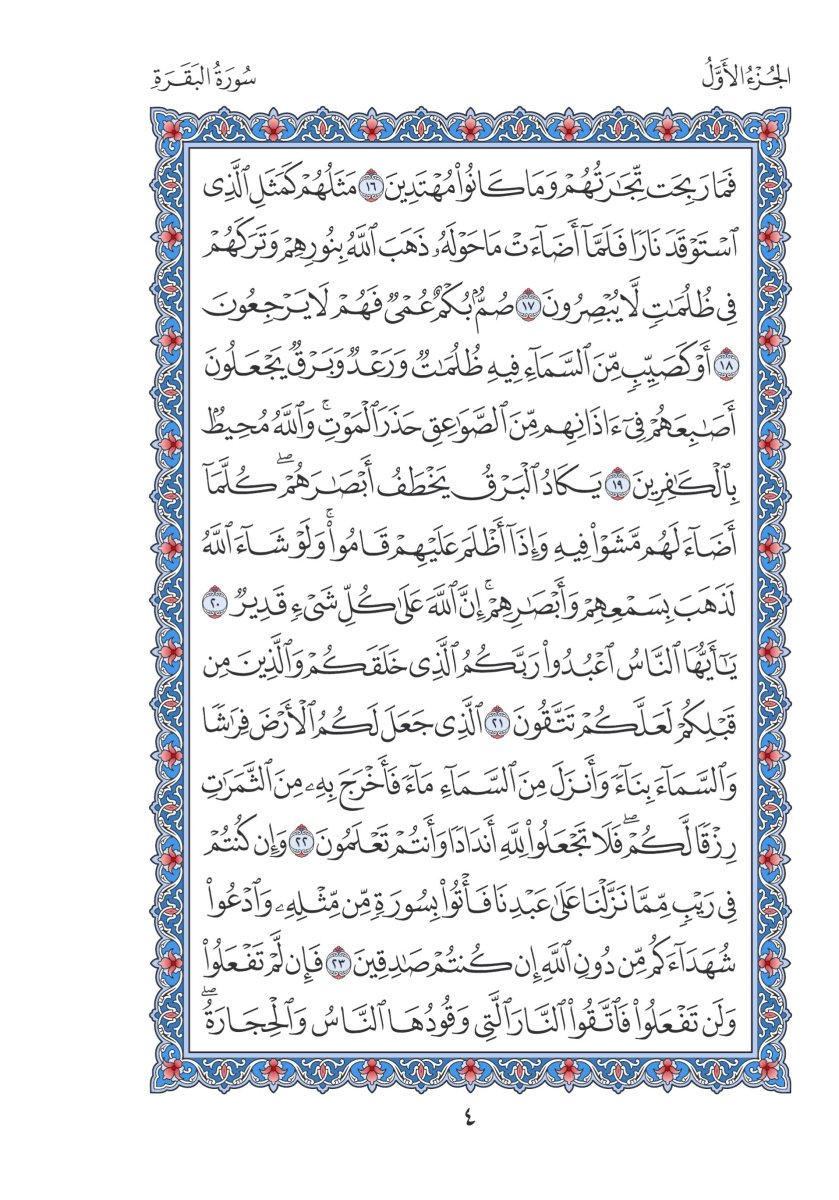 الجُزْءُ الأَوَّلُ
سُورَةُ البَقَرَةِ
فَمَا رَبِحَت تِّجَٰرَتُهُمْ وَمَا كَانُوا۟ مُهْتَدِينَ ١٦ مَثَلُهُمْ كَمَثَلِ ٱلَّذِى
ٱسْتَوْقَدَ نَارًا فَلَمَّآ أَضَآءَتْ مَا حَوْلَهُۥ ذَهَبَ ٱللَّهُ بِنُورِهِمْ وَتَرَكَهُمْ
فِى ظُلُمَٰتٍ لَّا يُبْصِرُونَ ١٧ صُمٌّۢ بُكْمٌ عُمْىٌ فَهُمْ لَا يَرْجِعُونَ
١٨ أَوْ كَصَيِّبٍ مِّنَ ٱلسَّمَآءِ فِيهِ ظُلُمَٰتٌ وَرَعْدٌ وَبَرْقٌ يَجْعَلُونَ
أَصَٰبِعَهُمْ فِىٓ ءَاذَانِهِم مِّنَ ٱلصَّوَٰعِقِ حَذَرَ ٱلْمَوْتِ ۚ وَٱللَّهُ مُحِيطٌۢ
بِٱلْكَٰفِرِينَ ١٩ يَكَادُ ٱلْبَرْقُ يَخْطَفُ أَبْصَٰرَهُمْ ۖ كُلَّمَآ
أَضَآءَ لَهُم مَّشَوْا۟ فِيهِ وَإِذَآ أَظْلَمَ عَلَيْهِمْ قَامُوا۟ ۚ وَلَوْ شَآءَ ٱللَّهُ
لَذَهَبَ بِسَمْعِهِمْ وَأَبْصَٰرِهِمْ ۚ إِنَّ ٱللَّهَ عَلَىٰ كُلِّ شَىْءٍ قَدِيرٌ ٢٠
يَٰٓأَيُّهَا ٱلنَّاسُ ٱعْبُدُوا۟ رَبَّكُمُ ٱلَّذِى خَلَقَكُمْ وَٱلَّذِينَ مِن
قَبْلِكُمْ لَعَلَّكُمْ تَتَّقُونَ ٢١ ٱلَّذِى جَعَلَ لَكُمُ ٱلْأَرْضَ فِرَٰشًا
وَٱلسَّمَآءَ بِنَآءً وَأَنزَلَ مِنَ ٱلسَّمَآءِ مَآءً فَأَخْرَجَ بِهِۦ مِنَ ٱلثَّمَرَٰتِ
رِزْقًا لَّكُمْ ۖ فَلَا تَجْعَلُوا۟ لِلَّهِ أَندَادًا وَأَنتُمْ تَعْلَمُونَ ٢٢ وَإِن كُنتُمْ
فِى رَيْبٍ مِّمَّا نَزَّلْنَا عَلَىٰ عَبْدِنَا فَأْتُوا۟ بِسُورَةٍ مِّن مِّثْلِهِۦ وَٱدْعُوا۟
شُهَدَآءَكُم مِّن دُونِ ٱللَّهِ إِن كُنتُمْ صَٰدِقِينَ ٢٣ فَإِن لَّمْ تَفْعَلُوا۟
وَلَن تَفْعَلُوا۟ فَٱتَّقُوا۟ ٱلنَّارَ ٱلَّتِى وَقُودُهَا ٱلنَّاسُ وَٱلْحِجَارَةُ ۖ
٤